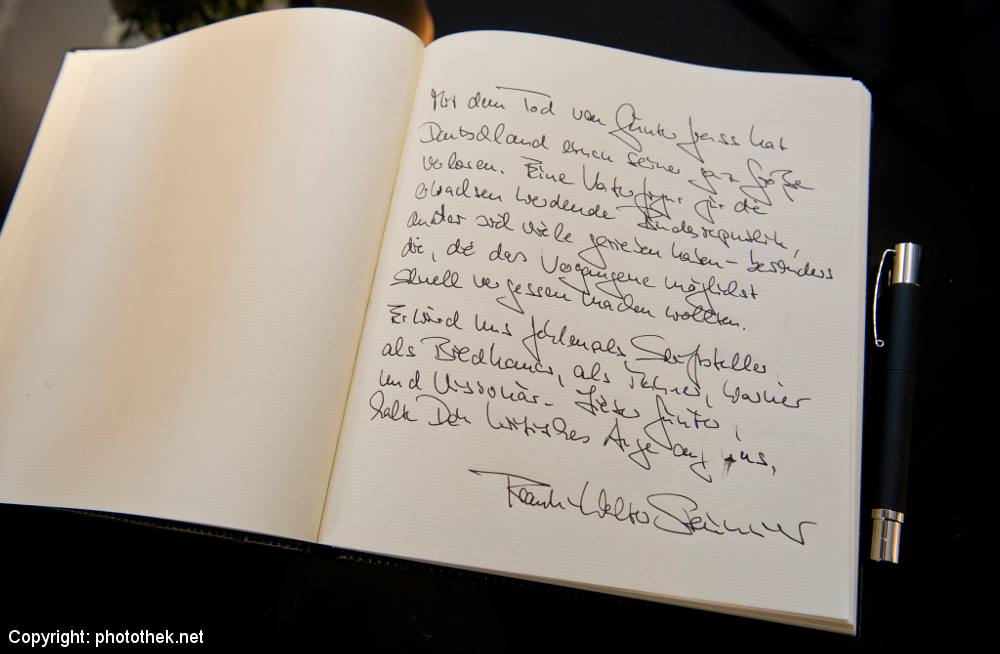 Mit dem Tod von Günter Grass hat
Deutschland einen seiner ganz Großen
verloren. Eine Vaterfigur für die
erwachsen werdende Bundesrepublik,
an der sich viele gerieben haben – besonders
die, die das Vergangene möglichst
schnell vergessen machen wollten.
Er wird uns fehlen als Schriftsteller,
als Bildhauer, als Zeichner, Warner
und Visionär. Lieber Günter,
halte Dein kritisches Auge auf uns,
Frank-Walter Steinmeier
Copyright: photothek.net